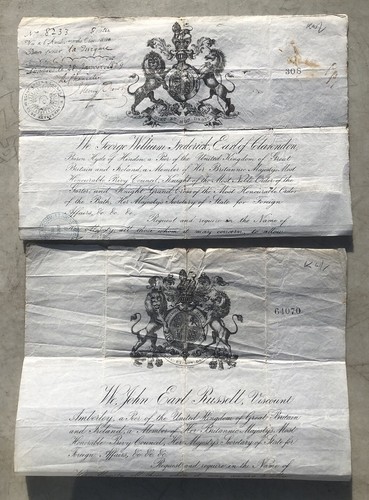 No 8233
pour la Turquie
305
We George William Frederick, Earl of Clarendon,
Baron Hyde of Hindon, a Peer of the United Kingdom of Great
Britain and Ireland, a Member of Her Britannic Majesty's Most
Honorable Privy Council, Knight of the Most Noble Order of the
Garter, and Knight Grand Cross of the Most Honorable Order
of the Bath, Her Majesty's Secretary of State for Foreign
Affairs, &c. &c. &c.
Request and require in the Name of
Her Majesty, all those whom it may concern to allow
64070
We, John Earl Russell, Viscount
Amberley, a Peer of the United Kingdom of Great Britain
and Ireland, a Member of Her Britannic Majesty's Most
Honorable Privy Council, Her Majesty's Secretary of State for
Foreign Affairs, &c. &c. &c.
Request and require in the Name of